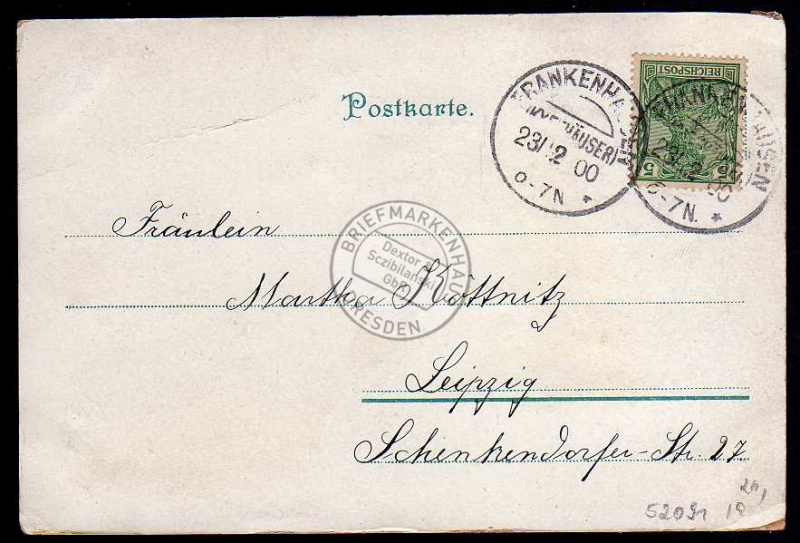 Postkarte.
FRANKENHAUSEN
(KYFFHÄUSER)
23/12 00
6-7N. *
REICHSPOST
5 5
Fräulein
Martha Köttnitz
Leipzig
Schenkendorfer-Str. 27
BRIEFMARKENHAUS
Dextor &
Sczibilanski
GbR
DRESDEN